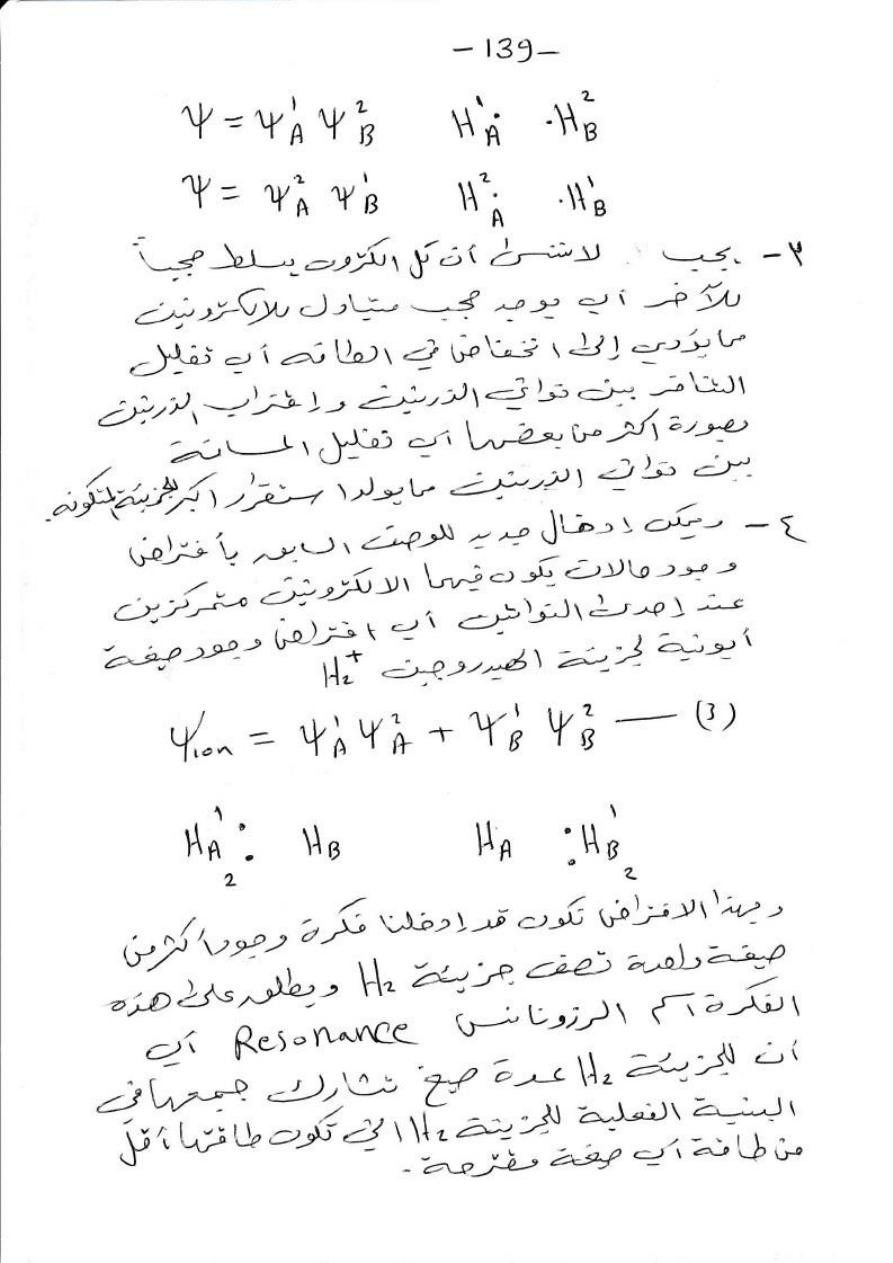 -139-
Ψ = Ψ¹A Ψ²B H¹A· ·H²B
Ψ = Ψ²A Ψ¹B H²A· ·H¹B
٣- يجب لا ننسى أن كل الكترون يسلط حجباً
للآخر أي يوجد حجب متبادل للالكترونين
مما يؤدي إلى انخفاض في الطاقه أي تقليل
التنافر بين نواتي الذرتين واقتراب الذرتين
بصورة اكثر من بعضها أي تقليل المسافة
بين نواتي الذرتين مما يولد استقرار اكبر للجزيئة المتكونه.
٤- ويمكن إدخال جديد للوصف السابق بأفتراض
وجود حالات يكون فيها الالكترونين متمركزين
عند إحدى النواتين أي افتراض وجود صيغة
أيونية لجزيئة الهيدروجين H₂⁺
Ψion = Ψ¹A Ψ²A + Ψ¹B Ψ²B — (3)
HA¹₂: HB HA :HB¹₂
وبهذا الافتراض نكون قد إدخلنا فكرة وجود أكثر من
صيغة واحدة تصف جزيئة H₂ ويطلق على هذه
الفكرة اسم الرزونانس Resonance أي
أن للجزيئة H₂ عدة صيغ تشارك جمعها في
البنية الفعلية للجزيئة H₂ التي تكون طاقتها أقل
من طاقة أي صيغة مقترحة.